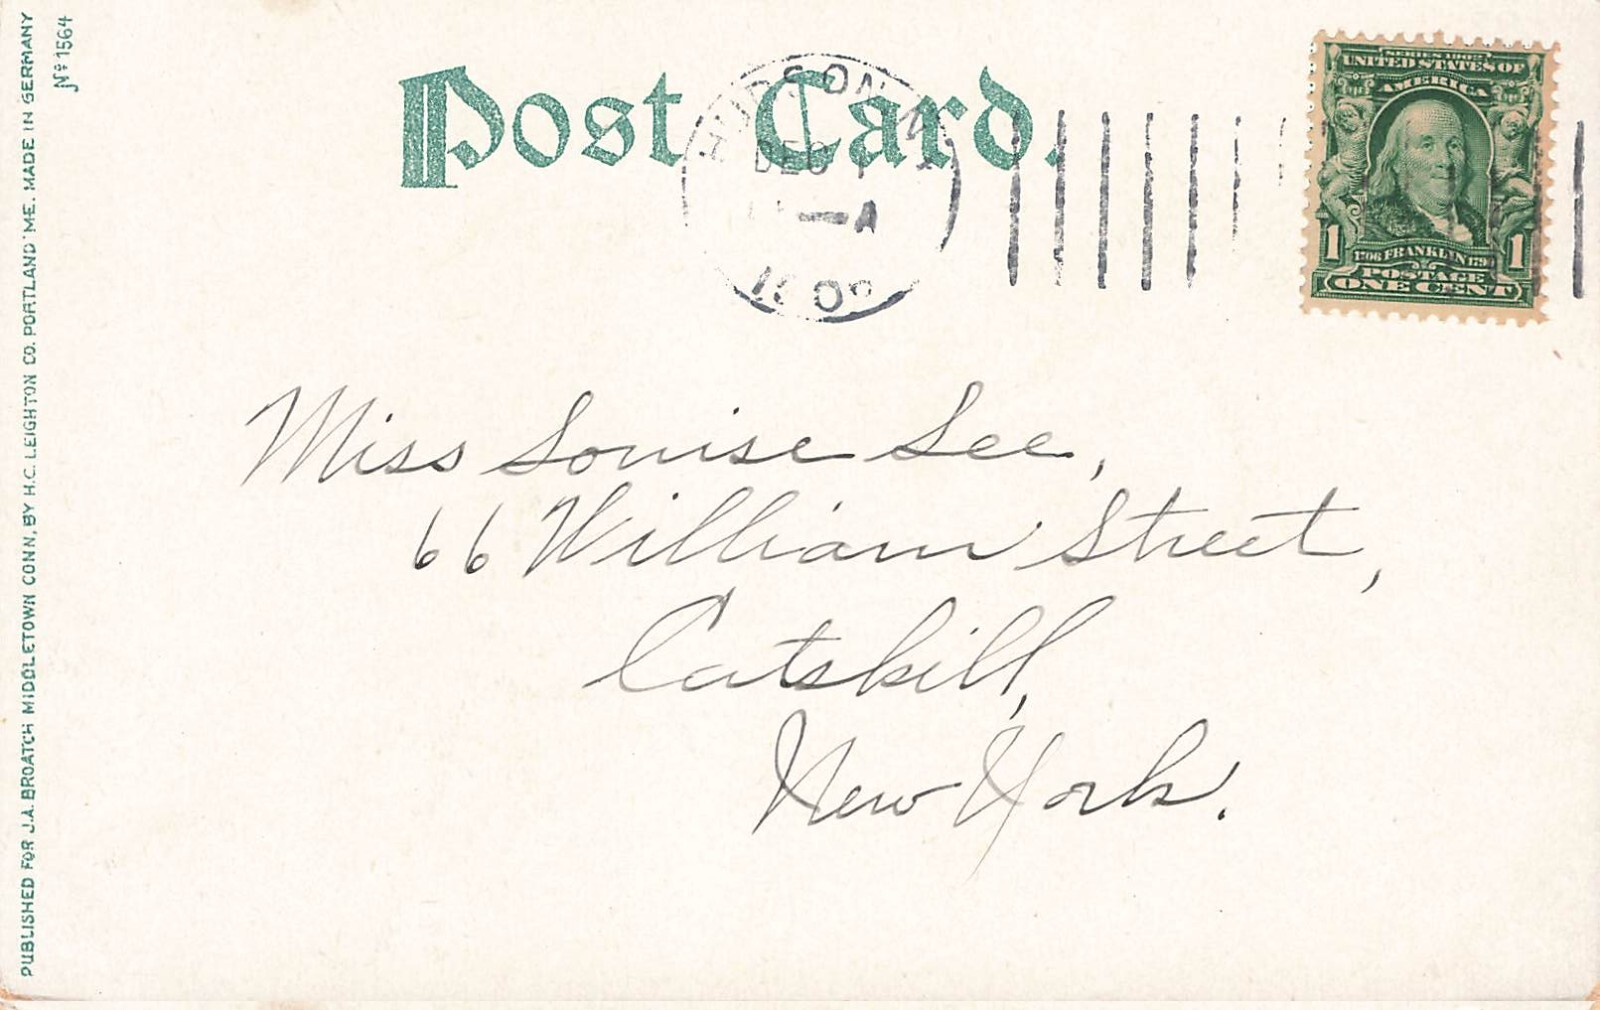 Post Card.
HUDSON N.Y.
DEC
A
SERIES 1902
UNITED STATES OF
AMERICA
1706 FRANKLIN 1790
1 POSTAGE 1
ONE CENT
Miss Louise Lee,
66 William Street,
Catskill,
New York.
PUBLISHED FOR J.A. BROATCH MIDDLETOWN CONN. BY H.C. LEIGHTON CO. PORTLAND ME. MADE IN GERMANY
No 1564